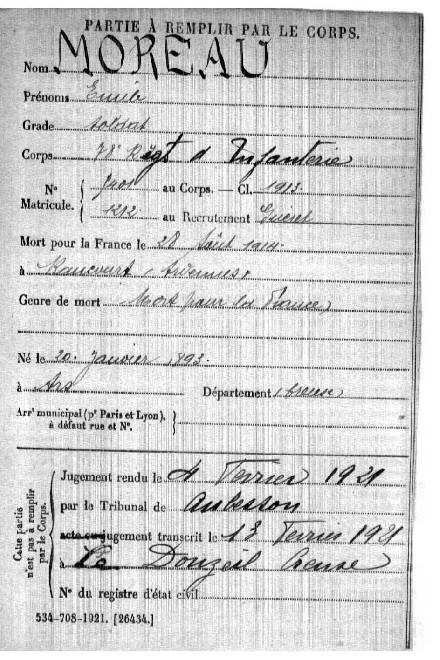 PARTIE À REMPLIR PAR LE CORPS.
Nom MOREAU
Prénoms Emile
Grade soldat
Corps 78e Régt d'Infanterie
N° au Corps. — Cl. 1913
Matricule. 1212 au Recrutement Guéret
Mort pour la France le 28 Août 1914
à Raucourt Ardennes
Genre de mort Mort pour la France
Né le 20 Janvier 1893
à Ars Département Creuse
Arrt municipal (pr Paris et Lyon),
à défaut rue et N°.
Cette partie
n'est pas à remplir
par le Corps.
Jugement rendu le 4 Février 1921
par le Tribunal de Aubusson
acte ou jugement transcrit le 13 Février 1921
à Le Donzeil Creuse
N° du registre d'état civil
534-708-1921. [26434.]